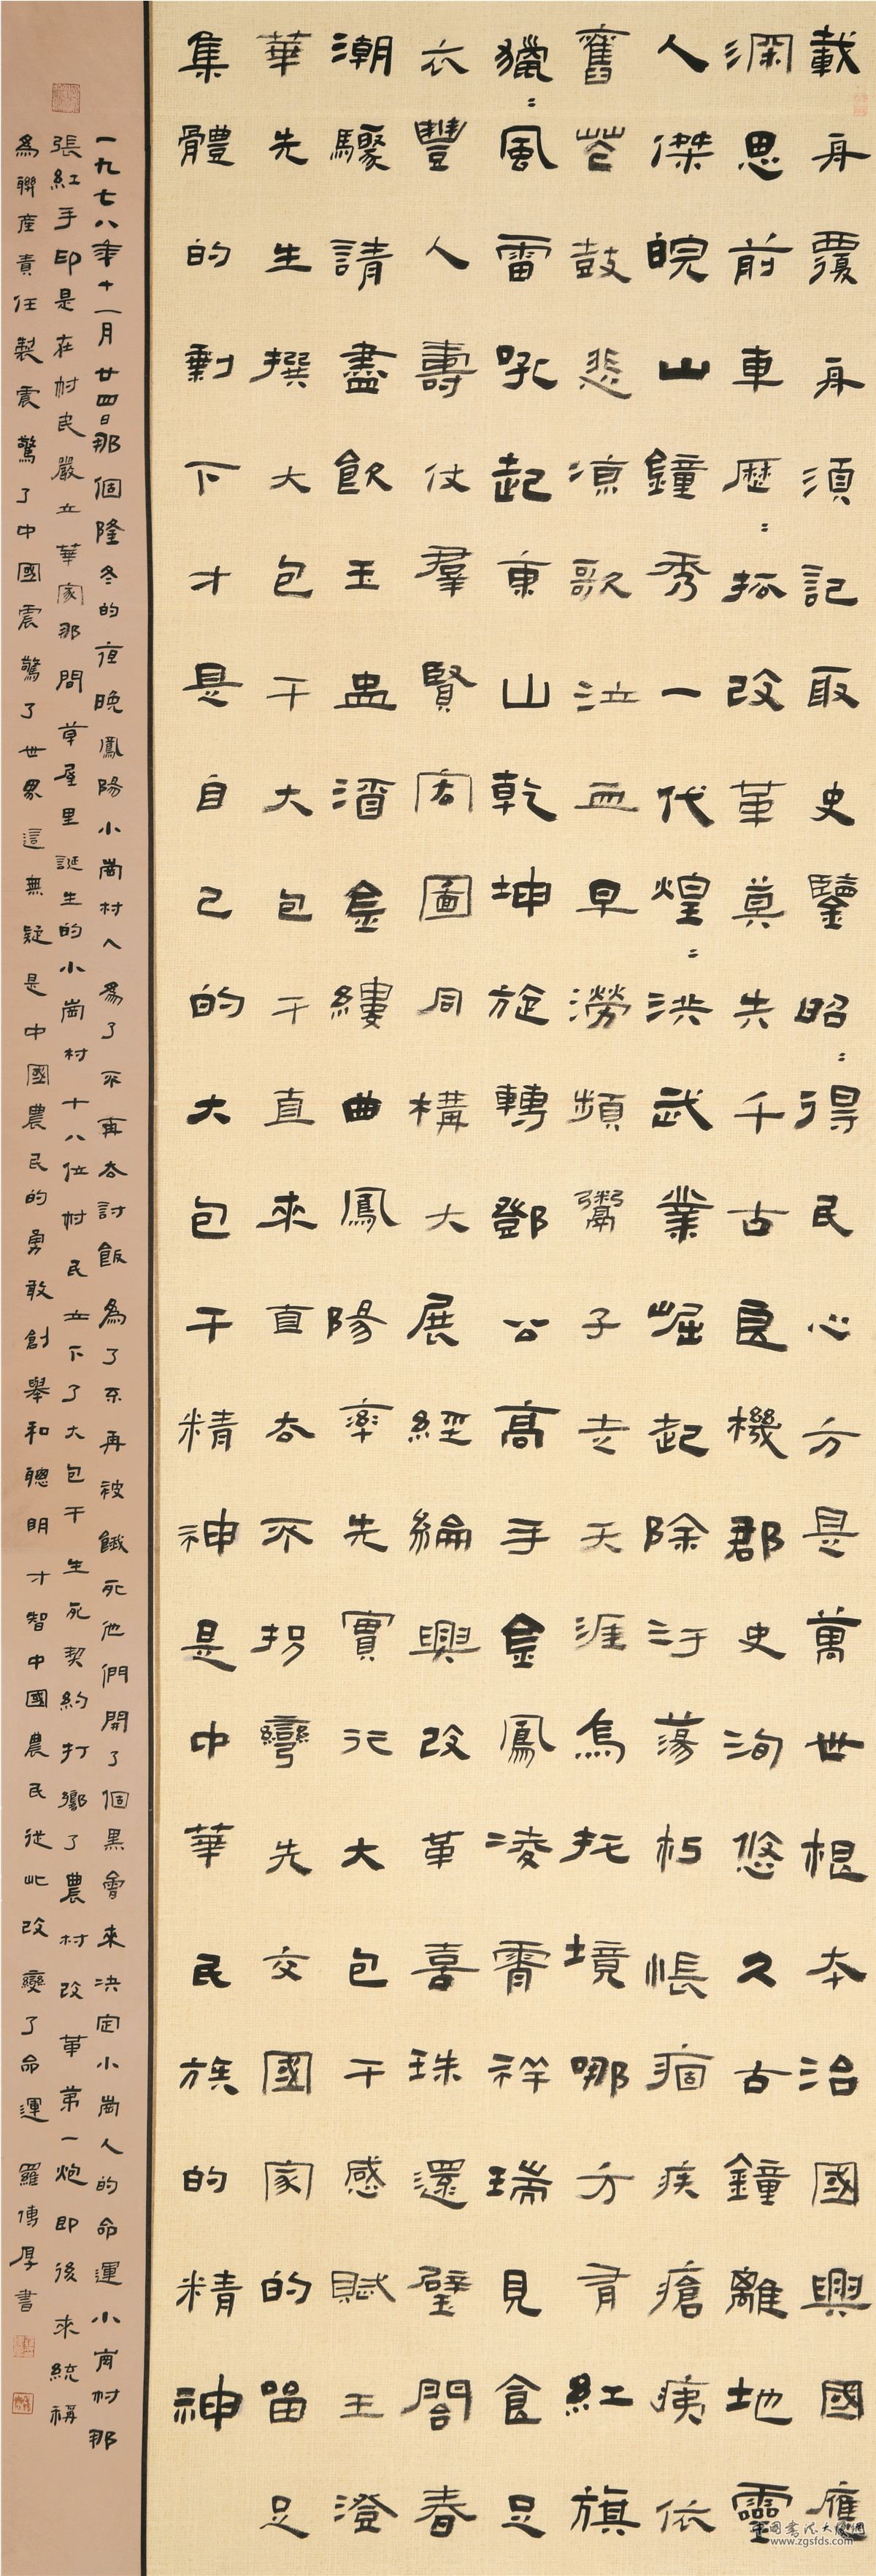 載舟覆舟須記取史鑒昭=得民心方是萬世根本治國興國應
深思前車歷=抓改革莫失千古良機郡史洵悠久古鐘離地靈
人傑皖山鐘秀一代煌=洪武業崛起除汙蕩朽悵痼疾瘡痍依
舊花鼓悲涼歌泣血旱澇頻鬻子走天涯烏托境哪方有紅旗
獵=風雷吼起東山乾坤旋轉鄧公高手金鳳凌霄祥瑞見食足
衣豐人壽仗羣賢宏圖同構大展經綸興改革喜珠還璧閤春
潮驟請盡飲玉盅酒金縷曲鳳陽率先實行大包干感賦王澄
華先生撰大包干大包干直來直去不拐彎先交國家的留足
集體的剩下才是自己的大包干精神是中華民族的精神
一九七八年十一月廿四日那個隆冬的夜晚鳳陽小崗村人為了不再去討飯為了不再被餓死他們開了個黑會來決定小崗人的命運小崗村那
張紅手印是在村民嚴立華家那間草屋里誕生的小崗村十八位村民立下了大包干生死契約打響了農村改革第一炮即後來統稱
為聯產責任製震驚了中國震驚了世界這無疑是中國農民的勇敢創舉和聰明才智中國農民從此改變了命運羅傳厚書
www.zgsfds.com